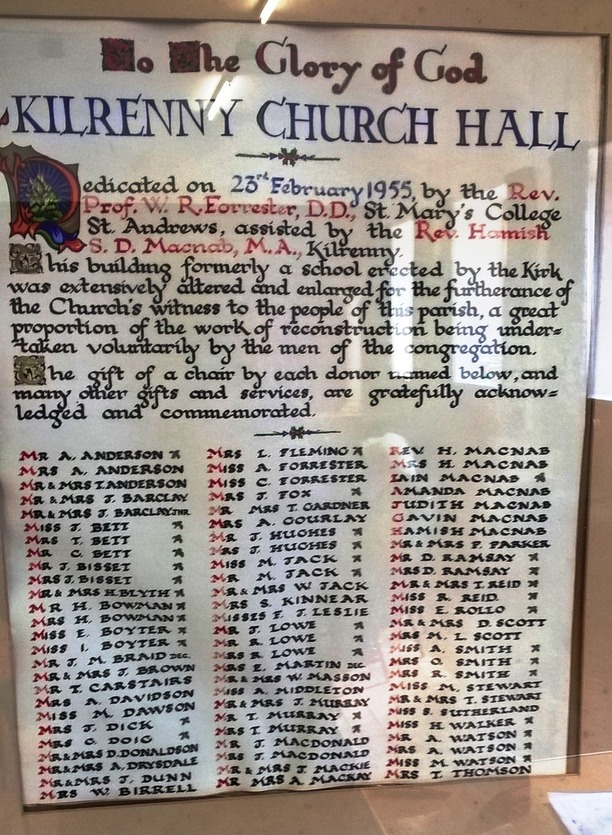 To The Glory of God
KILRENNY CHURCH HALL
Dedicated on 23rd February 1955, by the Rev.
Prof. W. R. Forrester, D.D., St. Mary's College
St. Andrews, assisted by the Rev. Hamish
S. D. Macnab, M.A., Kilrenny.
This building formerly a school erected by the Kirk
was extensively altered and enlarged for the furtherance of
the Church's witness to the people of this parish, a great
proportion of the work of reconstruction being under=
taken voluntarily by the men of the congregation.
The gift of a chair by each donor named below, and
many other gifts and services, are gratefully acknow=
ledged and commemorated.
MR A. ANDERSON
MRS A. ANDERSON
MR & MRS T. ANDERSON
MR & MRS J. BARCLAY
MR & MRS J. BARCLAY JNR.
MISS J. BETT
MRS T. BETT
MR C. BETT
MR J. BISSET
MRS J. BISSET
MR & MRS H. BLYTH
MR H. BOWMAN
MRS H. BOWMAN
MISS E. BOYTER
MISS I. BOYTER
MR J. M. BRAID DEC.
MR & MRS J. BROWN
MR T. CARSTAIRS
MRS A. DAVIDSON
MISS M. DAWSON
MRS J. DICK
MRS C. DOIG
MR & MRS D. DONALDSON
MR & MRS A. DRYSDALE
MR & MRS J. DUNN
MRS W. BIRRELL
MRS L. FLEMING
MISS A. FORRESTER
MISS C. FORRESTER
MRS J. FOX
MR MRS T. GARDNER
MRS A. GOURLAY
MR J. HUGHES
MRS J. HUGHES
MISS M. JACK
MR M. JACK
MR & MRS W. JACK
MRS S. KINNEAR
MISSES F. J. LESLIE
MR J. LOWE
MR R. LOWE
MRS R. LOWE
MRS E. MARTIN DEC.
MR & MRS W. MASSON
MISS A. MIDDLETON
MR & MRS J. MURRAY
MR T. MURRAY
MRS T. MURRAY
MR J. MACDONALD
MRS J. MACDONALD
MR & MRS J. MACKIE
MR MRS A. MACKAY
REV. H. MACNAB
MRS H. MACNAB
IAIN MACNAB
AMANDA MACNAB
JUDITH MACNAB
GAVIN MACNAB
HAMISH MACNAB
MR & MRS P. PARKER
MR D. RAMSAY
MRS D. RAMSAY
MR & MRS T. REID
MISS R. REID
MISS E. ROLLO
MR & MRS D. SCOTT
MRS M. L. SCOTT
MISS A. SMITH
MRS O. SMITH
MRS R. SMITH
MISS M. STEWART
MR & MRS T. STEWART
MISS S. SUTHERLAND
MISS H. WALKER
MR A. WATSON
MRS A. WATSON
MISS M. WATSON
MRS T. THOMSON